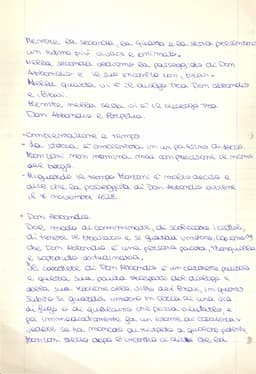 Mentre la seconda, la quarta e la sesta presentano
un ritmo più vivace e animato.
Nella seconda vediamo la passeggiata di Don
Abbondio e il suo incontro con i bravi.
Nella quarta vi è il dialogo tra Don Abbondio
e i Bravi.
Mentre nella sesta vi è il dialogo tra
Don Abbondio e Perpetua.
- Ambientazione e tempo
- La storia è ambientata in un
Manzoni non nomina mai con precisione il nome
del borgo.
- Riguardo il tempo Manzoni è molto deciso e
dice che la passeggiata di Don Abbondio avviene
il 7 novembre 1628.
• Don Abbondio
Dal modo di camminare, di
di tenere le braccia e si guarda intorno, capiamo
che Don Abbondio è una persona pacata, tranquilla
e
Il carattere di Don Abbondio è un carattere pauroso
e questa sua paura traspare dal dialogo e
dalla sua reazione alla vista dei Bravi, in quanto
subito si guarda intorno in cerca di una via
di fuga o di qualcuno che possa aiutarlo e
poi immediatamente fa un esame di coscienza
vedere se ha mancato di rispetto a qualche potente.
Manzoni